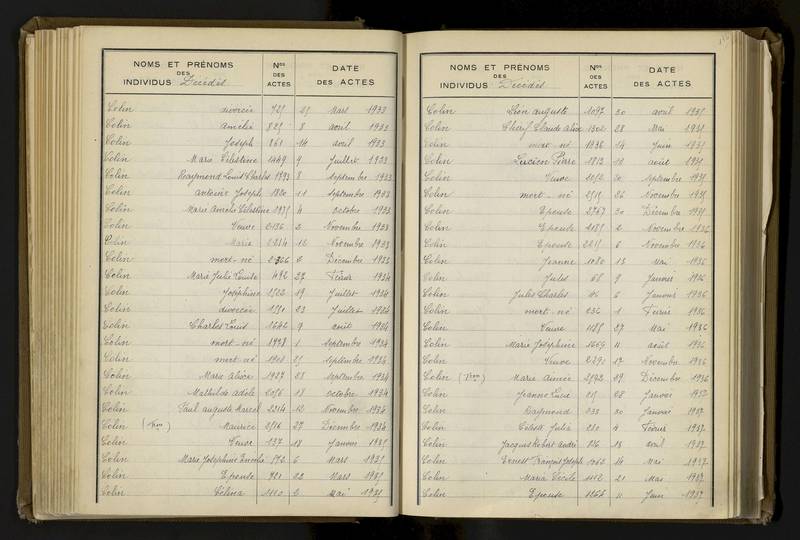 NOMS ET PRÉNOMS
DES
INDIVIDUS Décédés
Nos
DES
ACTES
DATE
DES ACTES
Colin divorcée 29 Mars 1933
Colin Amélie 829 8 avril 1933
Colin Joseph 861 14 avril 1933
Colin Marie Célestine 1449 9 Juillet 1933
Colin Raymond Louis Charles 1793 8 Septembre 1933
Colin antoine Joseph 1820 11 Septembre 1933
Colin Marie Amélie Célestine 4 octobre 1933
Colin Veuve 2136 2 Novembre 1933
Colin Marie 2214 12 Novembre 1933
Colin mort-né 2366 6 Décembre 1933
Colin Marie Julie Louise 492 27 Février 1934
Colin Joséphine 19 Juillet 1934
Colin divorcée 23 Juillet 1934
Colin Charles Louis 1642 9 août 1934
Colin mort-né 1798 1 Septembre 1934
Colin mort-né 1900 Septembre 1934
Colin Marie Alice 1927 28 Septembre 1934
Colin Mathilde adèle 2056 18 octobre 1934
Colin Paul auguste Marcel 2214 12 Novembre 1934
Colin Maurice 2516 27 Décembre 1934
Colin Veuve 137 18 Janvier 1935
Colin Marie Joséphine 592 6 Mars 1935
Colin Epouse 721 22 Mars 1935
Colin Célina 1100 2 Mai 1935
NOMS ET PRÉNOMS
DES
INDIVIDUS Décédés
Nos
DES
ACTES
DATE
DES ACTES
Colin Léon auguste 1097 30 avril 1935
Colin Claude 1302 28 Mai 1935
Colin mort-né 1436 14 Juin 1935
Colin Lucien Pierre 1812 10 août 1935
Colin Veuve Septembre 1935
Colin mort-né 26 Novembre 1935
Colin Epouse 2767 30 Décembre 1935
Colin Epouse 2185 2 Novembre 1936
Colin Epouse 2215 6 Novembre 1936
Colin Jeanne 1080 13 Mai 1936
Colin Jules 68 9 Janvier 1936
Colin Jules Charles 6 Janvier 1936
Colin mort-né 236 1 Février 1936
Colin Veuve 1188 27 Mai 1936
Colin Marie Joséphine 1669 11 août 1936
Colin Veuve 2290 17 Novembre 1936
Colin Marie Aimée 2592 29 Décembre 1936
Colin Jeanne Lucie 28 Janvier 1937
Colin Raymond 233 30 Janvier 1937
Colin Julia 4 Février 1937
Colin Jacques Robert André 18 avril 1937
Colin Ernest François Joseph 1062 14 Mai 1937
Colin Maria Cécile 1112 21 Mai 1937
Colin Epouse 1266 11 Juin 1937